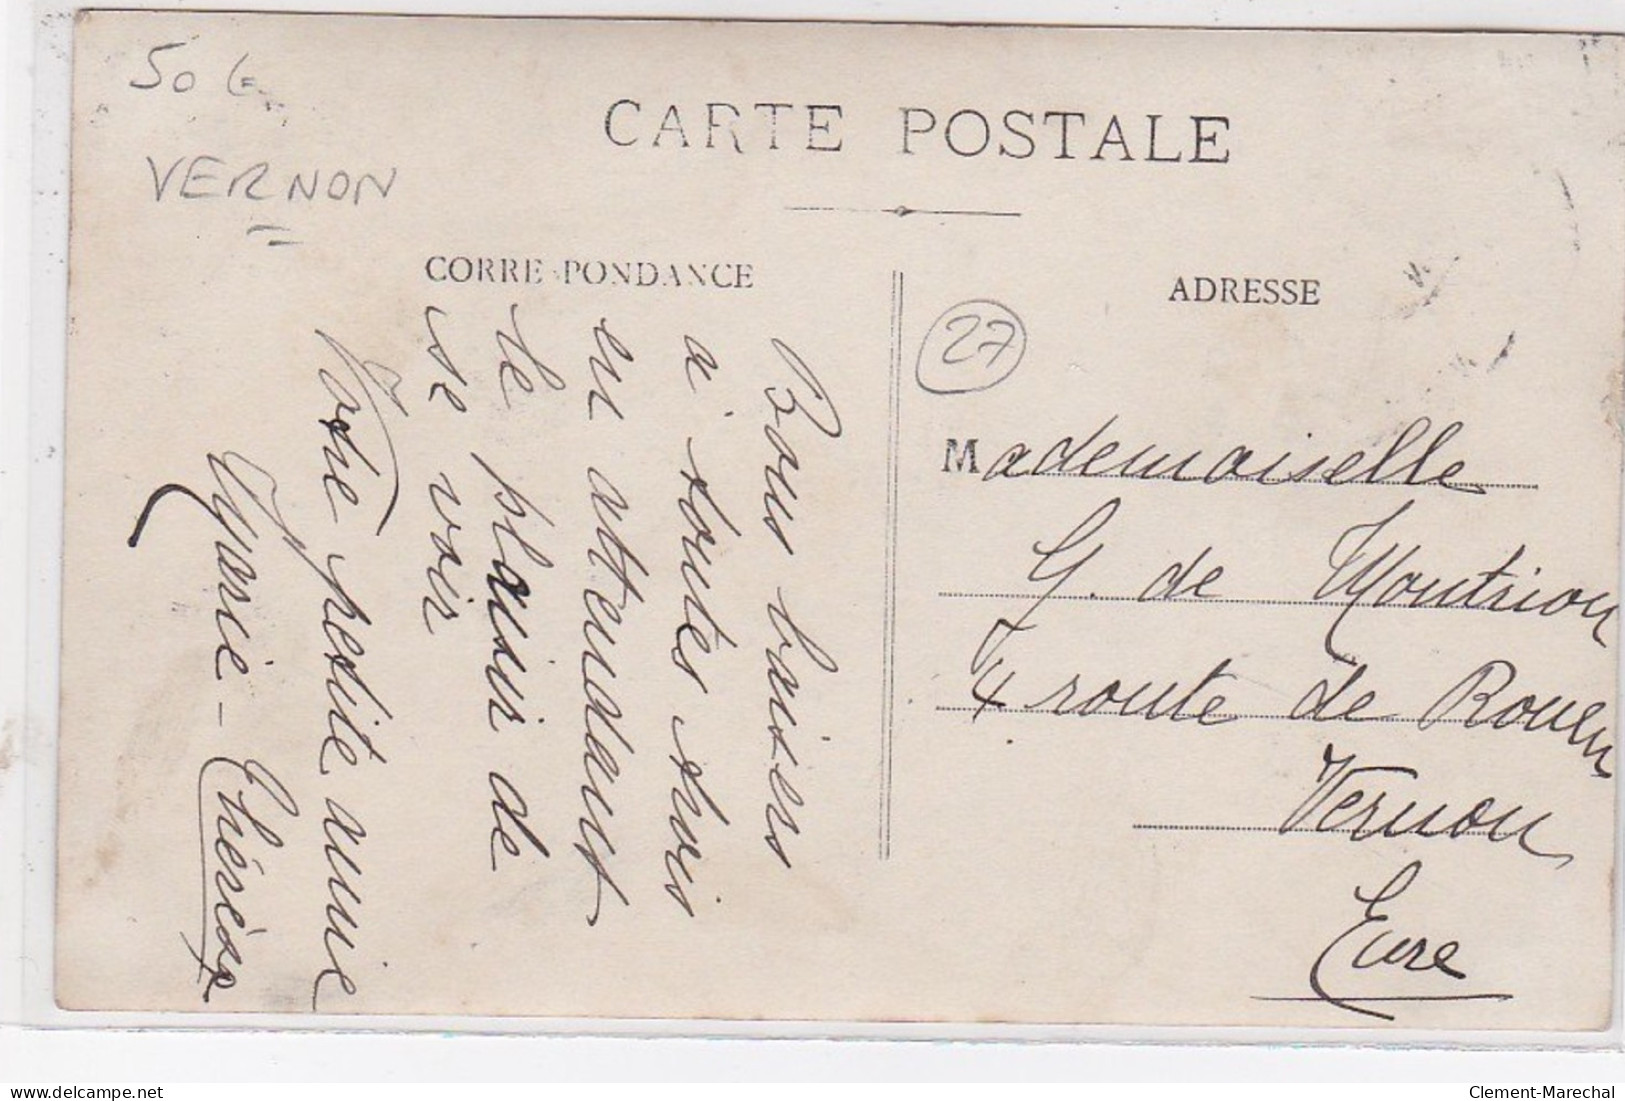 50 €
VERNON
CARTE POSTALE
CORRE PONDANCE
ADRESSE
27
Bons baisers
à toutes trois
en attendant
le plaisir de
se voir
Votre petite amie
Marie-Thérèse
Mademoiselle
G. de Moutrion
4 route de Rouen
Vernon
Eure
delcampe.net
Clement-Marechal